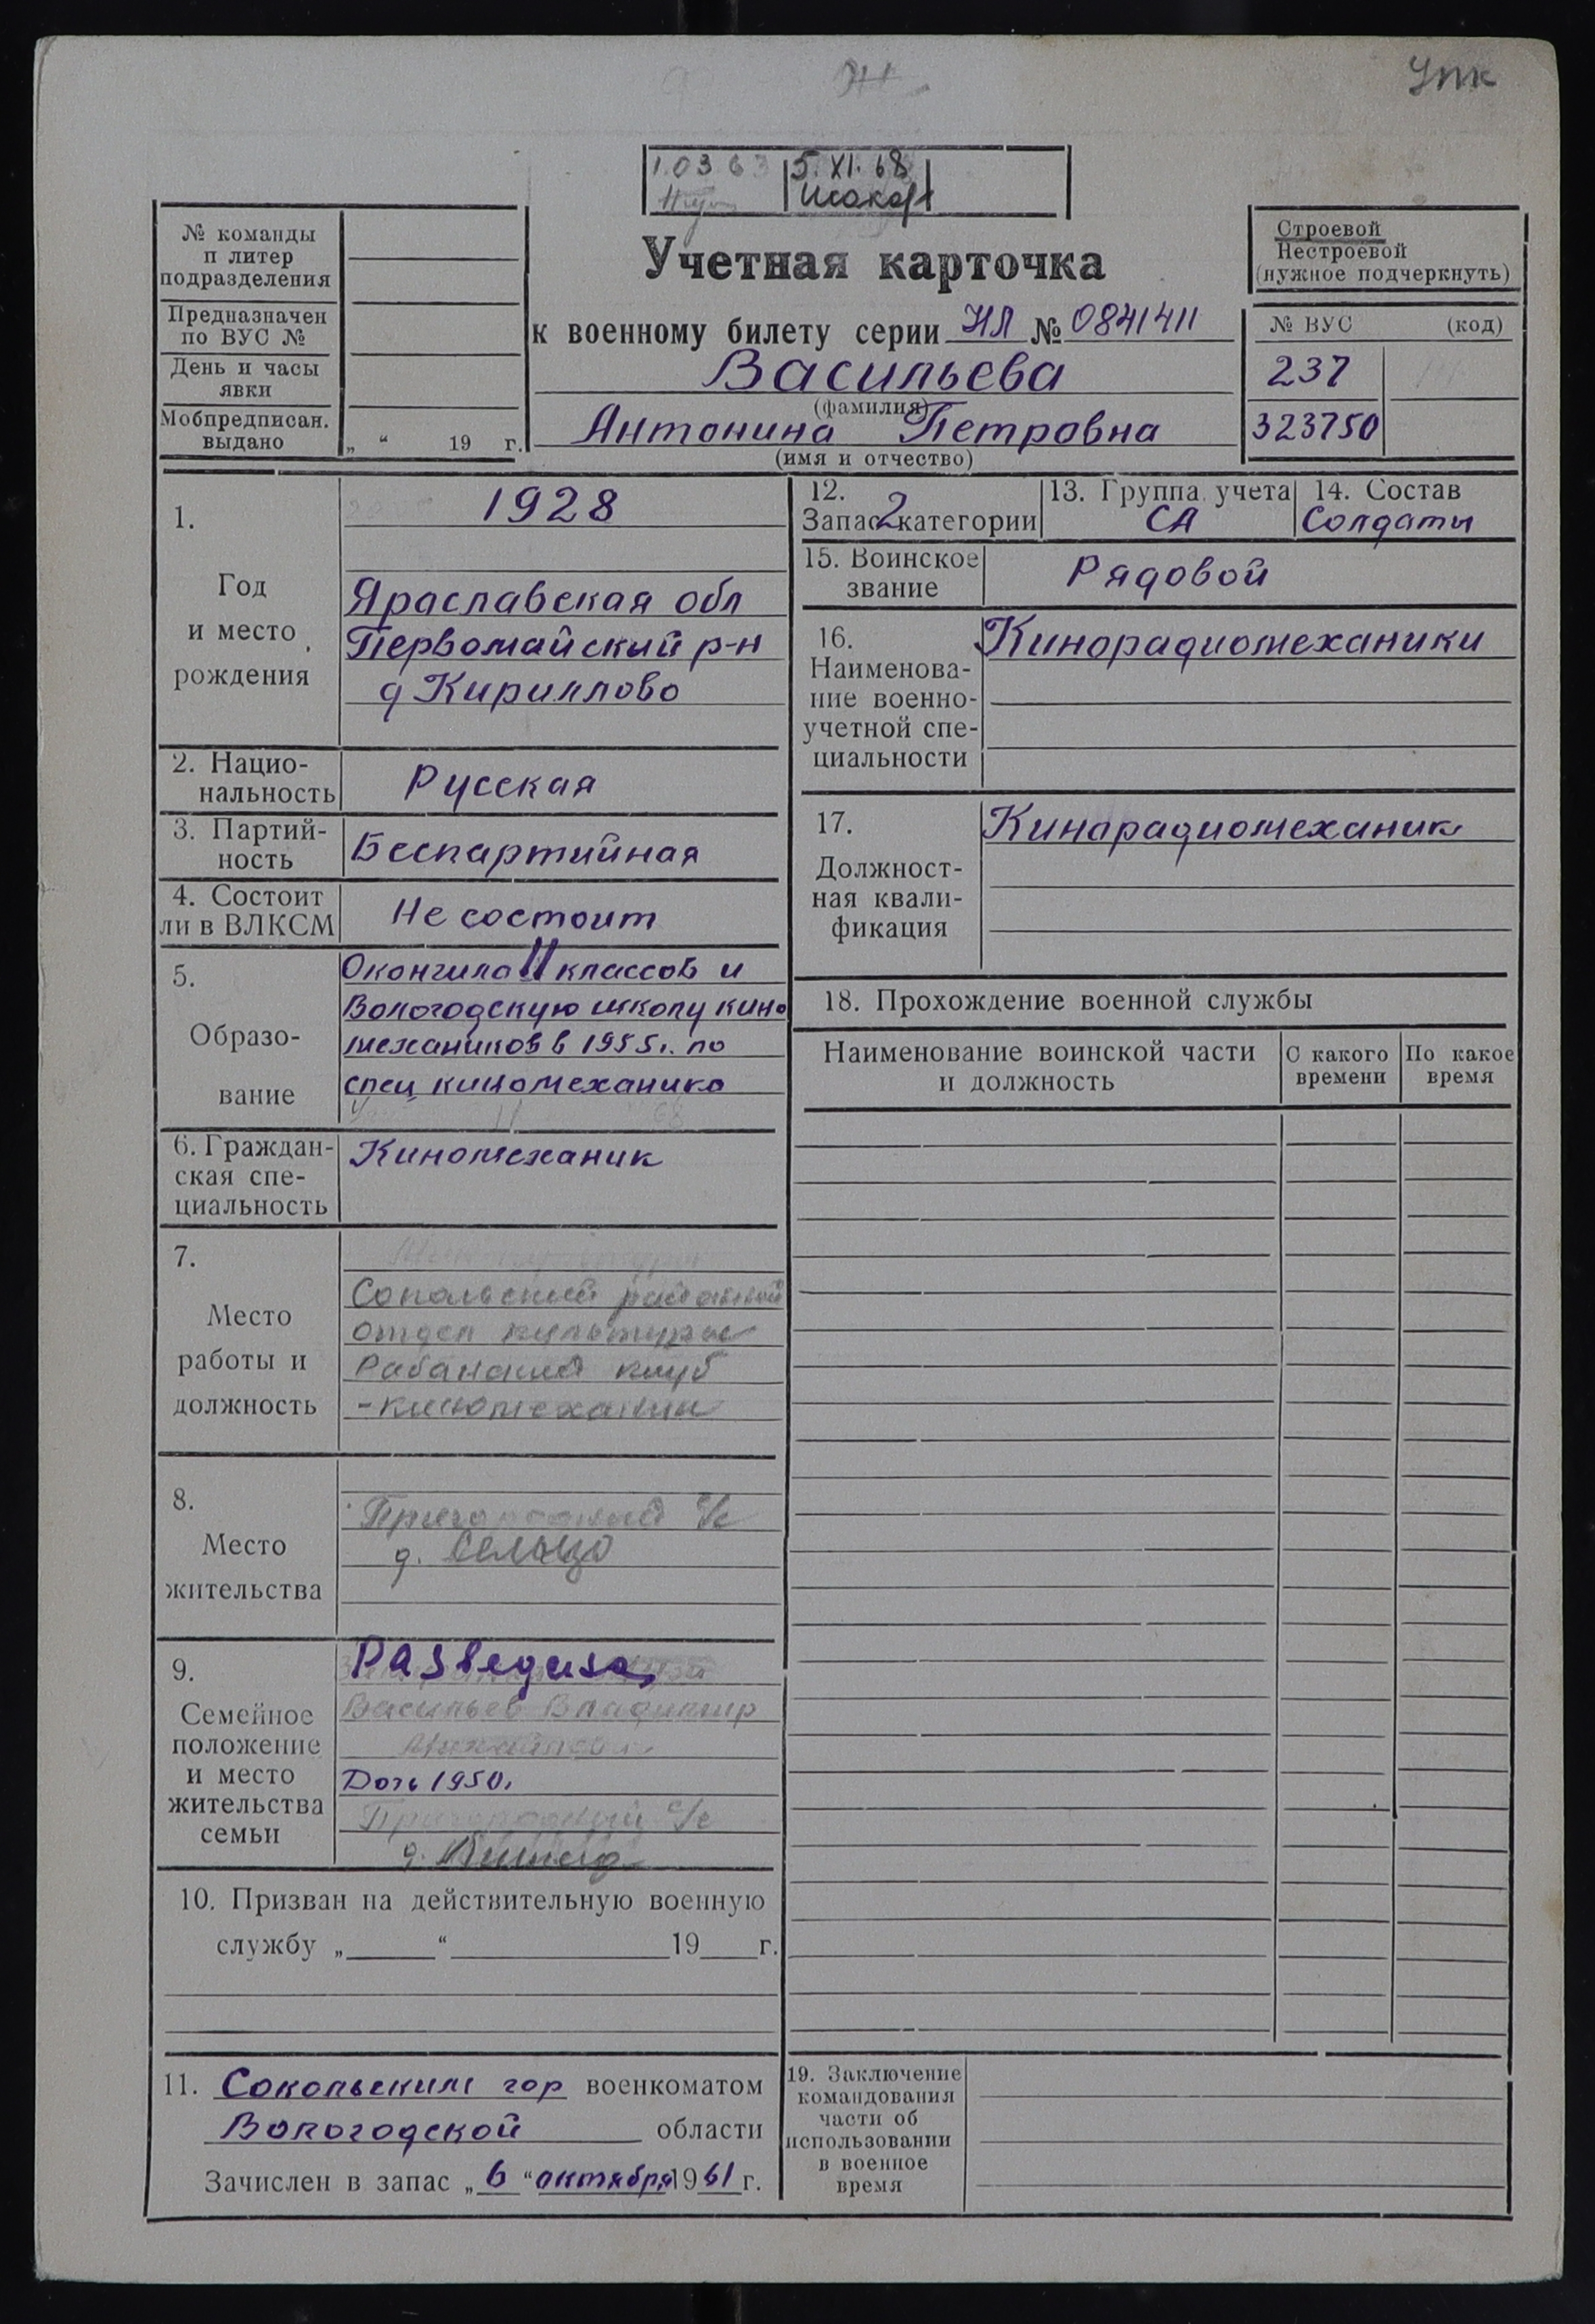 Упк
1.03.63 5.XI.68
№ команды
п литер
подразделения
Предназначен
по ВУС №
День и часы
явки
Мобпредписан.
выдано
„ “ 19 г.
Учетная карточка
к военному билету серии НЛ № 0841411
Васильева
(фамилия)
Антонина Петровна
(имя и отчество)
Строевой
Нестроевой
(нужное подчеркнуть)
№ ВУС (код)
237
323750
1.
Год
и место
рождения
1928
Яраславская обл
Первомайский р-н
д Кириллово
2. Нацио-
нальность
Русская
3. Партий-
ность
Беспартийная
4. Состоит
ли в ВЛКСМ
Не состоит
5.
Образо-
вание
Окончила 11 классов и
Вологодскую школу кино
механиков в 1955г. по
спец киномеханика
6. Граждан-
ская спе-
циальность
Киномеханик
7.
Место
работы и
должность
Сокольский районный
отдел культуры
Рабанский клуб
-киномеханик
8.
Место
жительства
Пригородный с/с
д.
9.
Семейное
положение
и место
жительства
семьи
Разведена
Васильев Владимир
Дочь 1950г
Пригородный с/с
д.
10. Призван на действительную военную
службу „ “ 19 г.
11. Сокольским гор военкоматом
Вологодской области
Зачислен в запас „6“ октября 1961 г.
12.
Запас 2 категории
13. Группа учета
СА
14. Состав
Солдаты
15. Воинское
звание
Рядовой
16.
Наименова-
ние военно-
учетной спе-
циальности
Кинорадиомеханики
17.
Должност-
ная квали-
фикация
Кинарадиомеханик
18. Прохождение военной службы
Наименование воинской части
и должность
С какого
времени
По какое
время
19. Заключение
командования
части об
использовании
в военное
время